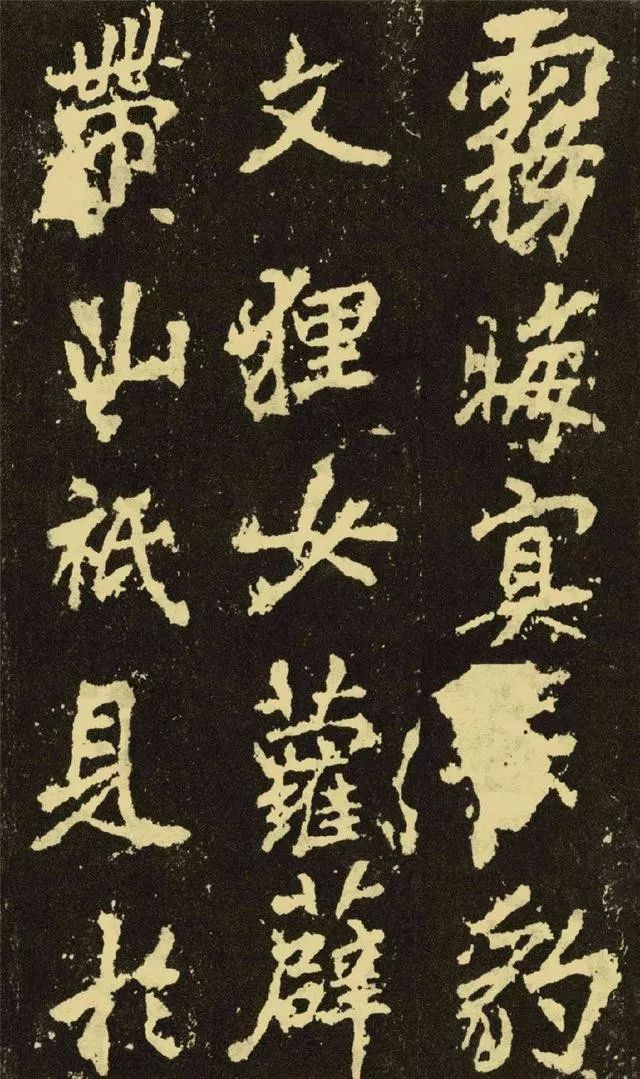 霧晦冥豹
文狸女蘿薜
帶山祇見於